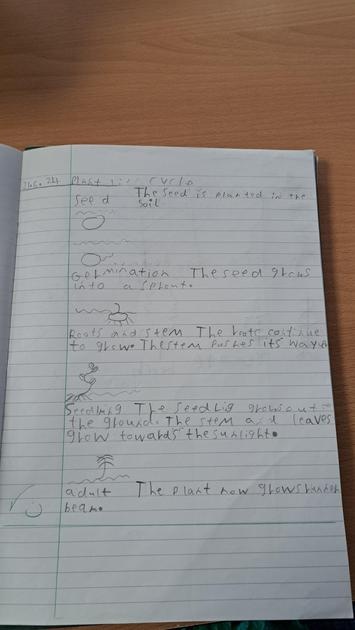 Plant life cycle
Seed The seed is planted in the
soil
Germination The seed grows
into a sprout.
Roots and stem The roots continue
to grow. The stem pushes its way
Seedling The seedlig grows out
the ground. The stem and leaves
grow towards the sunlight.
adult The plant now grows
bean.